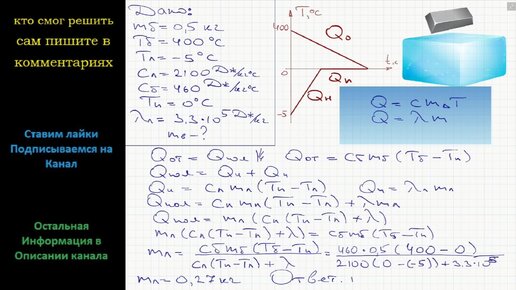 кто смог решить
сам пишите в
комментариях
Ставим лайки
Подписываемся на
Канал
Остальная
Информация в
Описании канала
Дано:
mб = 0,5 кг
Tб = 400°C
Tл = -5°C
Cл = 2100 Дж/кг°C
Cб = 460 Дж/кг°C
Tп = 0°C
λл = 3.3·10⁵ Дж/кг
T,°C
400
0
-5
t,c
Qо
Qп
Qн
Q = cmΔT
Q = λm
Qот = Qпол Qот = Cб mб (Tб - Tп)
Qпол = Qн + Qп
Qн = Cл mл (Tп - Tл) Qп = λл mл
Qпол = Cл mл (Tп - Tл) + λ mл
Qпол = mл (Cл (Tп - Tл) + λ)
mл (Cл (Tп - Tл) + λ) = Cб mб (Tб - Tп)
mл = Cб mб (Tб - Tп) / Cл (Tп - Tл) + λ = 460·0,5 (400 - 0) / 2100 (0 - (-5)) + 3.3·10⁵
mл = 0,27 кг Ответ.